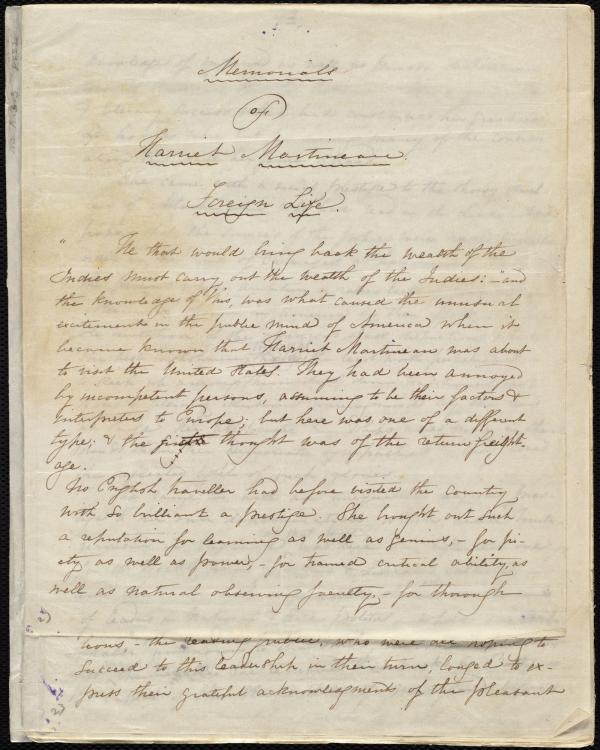 Memorials
of
Harriet Martineau.
Foreign Life.
"He that would bring back the wealth of the
Indies must carry out the wealth of the Indies:" - and
the knowledge of this, was what caused the unusual
excitement in the public mind of America when it
became known that Harriet Martineau was about
to visit the United States. They had been annoyed
by incompetent persons, assuming to be their factors &
interpreters to Europe; but here was one of a different
type; & the first thought was of the return freight-
age.
No English traveller had before visited the country
with so brilliant a prestige. She brought out such
a reputation for learning as well as genius, - for pi-
ety as well as power, - for trained critical ability, as
well as natural observing faculty, - for thorough
tions, - the leading public, who were all hoping to
succeed to this leadership in their turn, longed to ex-
press their grateful acknowledgments of the pleasant